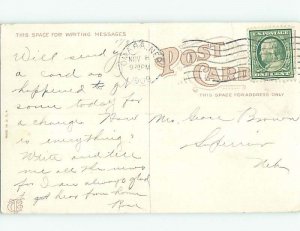 THIS SPACE FOR WRITING MESSAGES
Will send you
a card as
happened to get
some today for
a change. How
is everything.
Write and tell
me all the news
for I am always glad
to get hear from home
Rose
OMAHA, NEBR.
NOV 8
9 30 PM
1909
POST
CARD
THIS SPACE FOR ADDRESS ONLY
ONE CENT
Mrs. Geo. Brown
Superior
Nebr